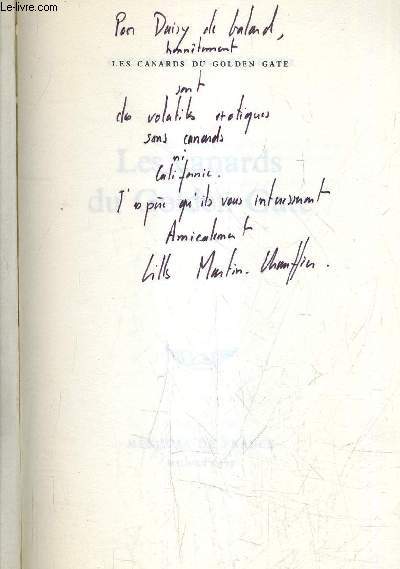 Le-Livre.com
Pour Daisy de Galard,
honnêtement
LES CANARDS DU GOLDEN GATE
sont
des volatiles exotiques
sans canards
ni
Californie.
J'espère qu'ils vous intéressent
Amicalement
Gilles Martin-Chauffier.
Les Canards
du Golden Gate
MERCURE DE FRANCE